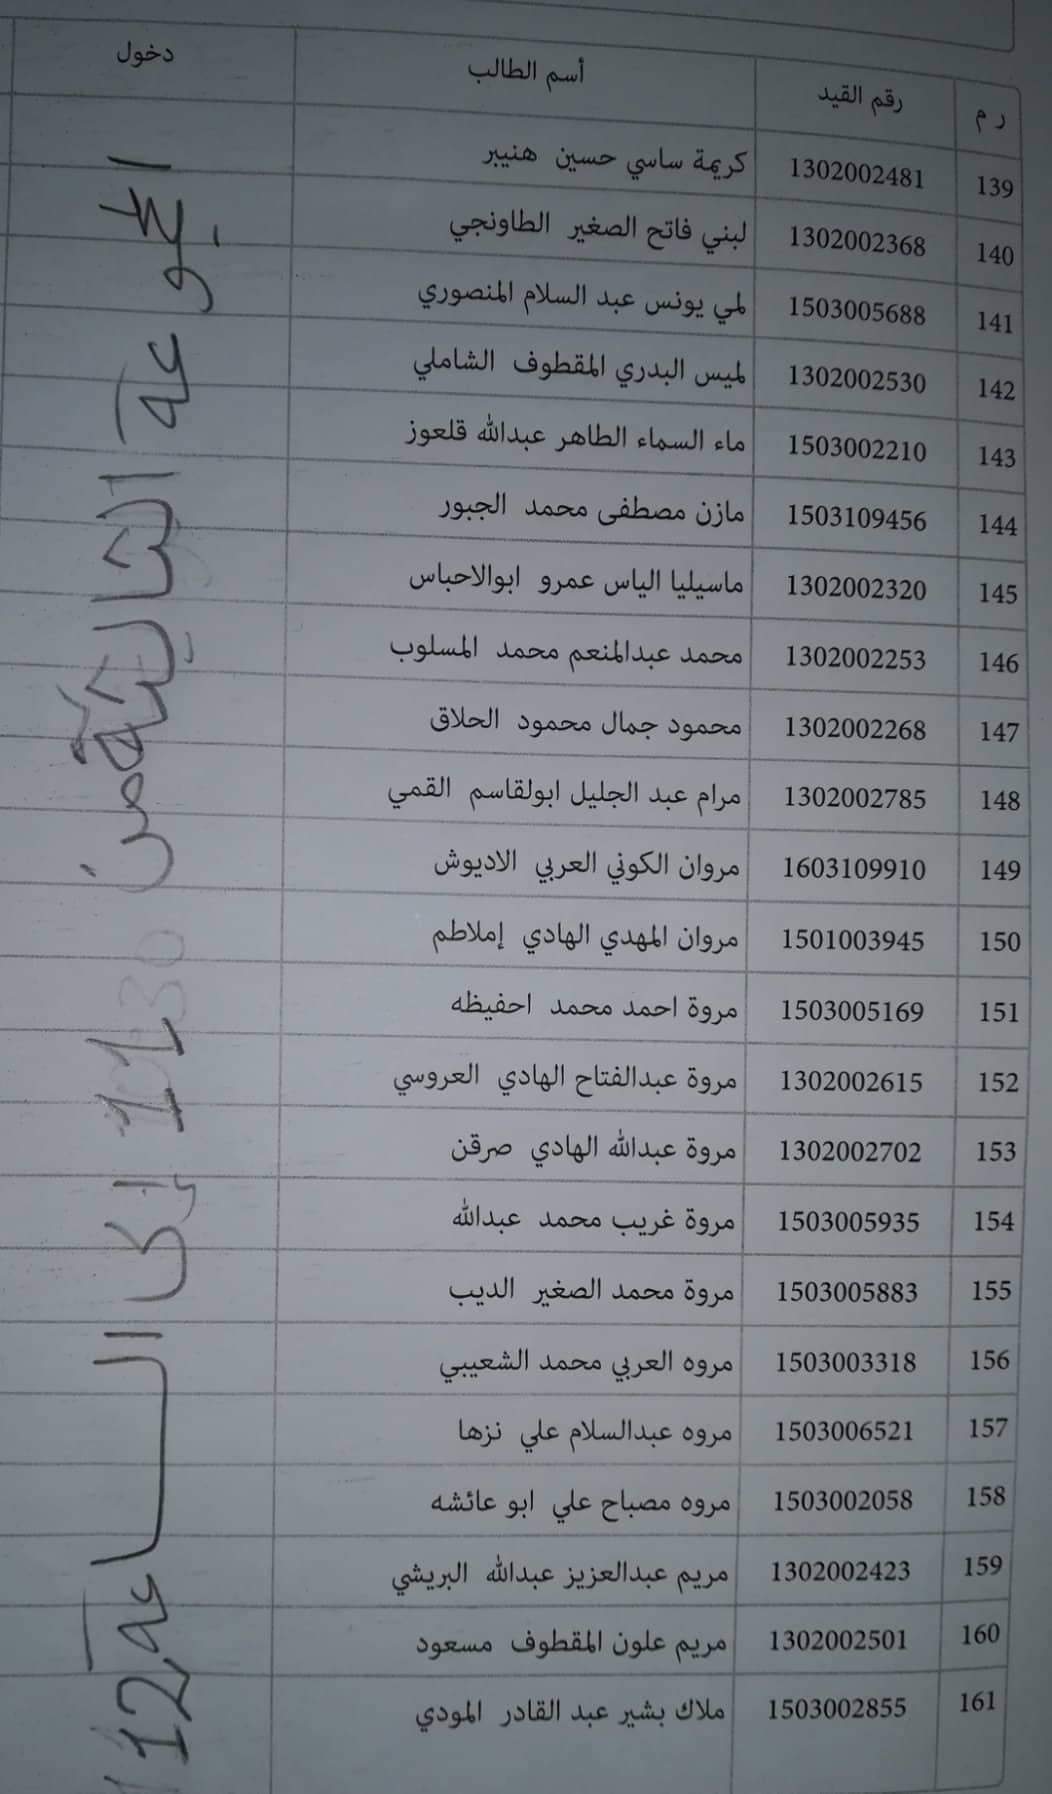 ر م رقم القيد أسم الطالب دخول
139 1302002481 كريمة ساسي حسين هنيبر
140 1302002368 لبني فاتح الصغير الطاونجي
141 1503005688 لمي يونس عبد السلام المنصوري
142 1302002530 لميس البدري المقطوف الشاملي
143 1503002210 ماء السماء الطاهر عبدالله قلعوز
144 1503109456 مازن مصطفى محمد الجبور
145 1302002320 ماسيليا الياس عمرو ابوالاحباس
146 1302002253 محمد عبدالمنعم محمد المسلوب
147 1302002268 محمود جمال محمود الحلاق
148 1302002785 مرام عبد الجليل ابولقاسم القمي
149 1603109910 مروان الكوني العربي الاديوش
150 1501003945 مروان المهدي الهادي إملاطم
151 1503005169 مروة احمد محمد احفيظه
152 1302002615 مروة عبدالفتاح الهادي العروسي
153 1302002702 مروة عبدالله الهادي صرقن
154 1503005935 مروة غريب محمد عبدالله
155 1503005883 مروة محمد الصغير الديب
156 1503003318 مروه العربي محمد الشعيبي
157 1503006521 مروه عبدالسلام علي نزها
158 1503002058 مروه مصباح علي ابو عائشه
159 1302002423 مريم عبدالعزيز عبدالله البريشي
160 1302002501 مريم علون المقطوف مسعود
161 1503002855 ملاك بشير عبد القادر المودي
المجموعة الثانية من 11 إلى الساعة 12